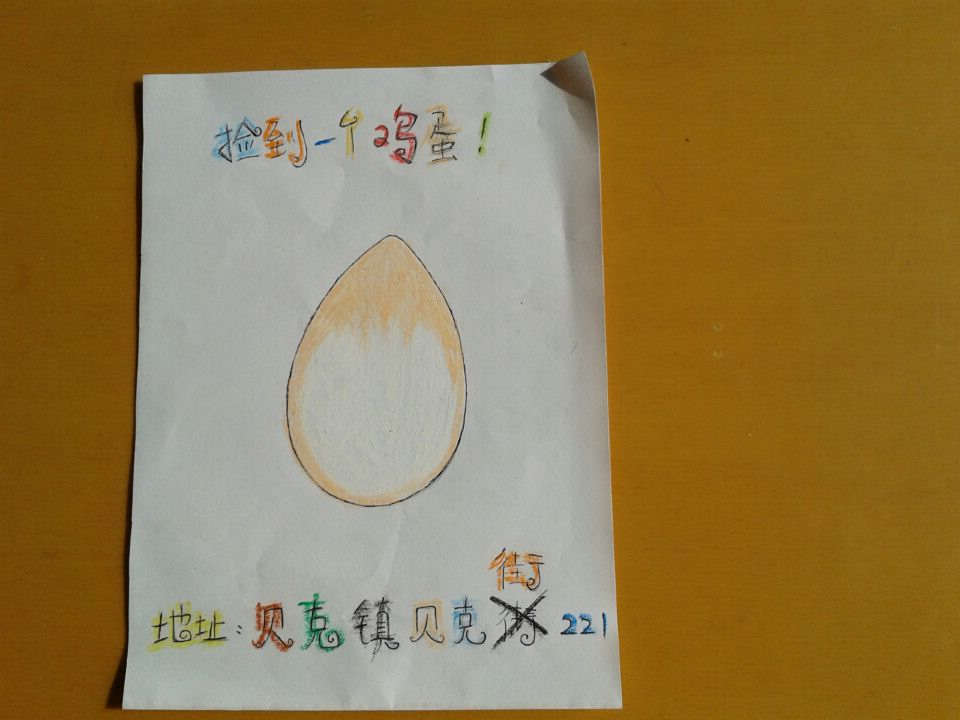 捡到一个鸡蛋!
街
地址:贝克镇贝克221